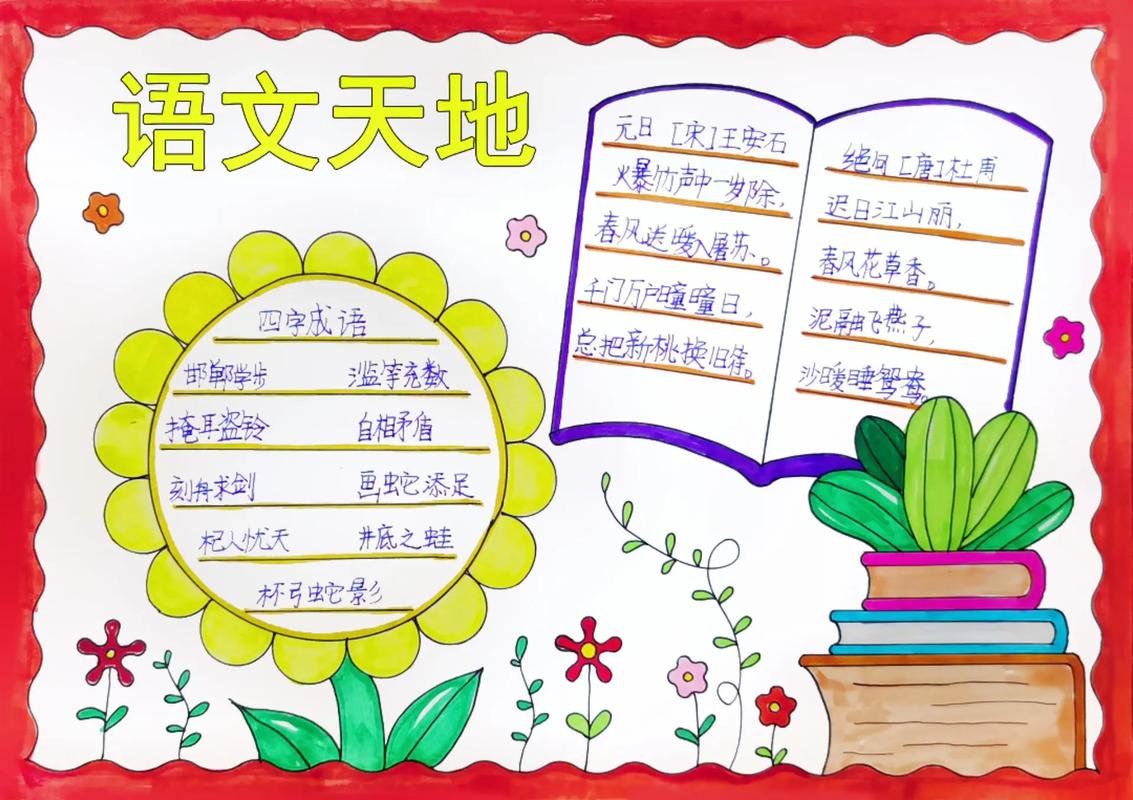 语文天地
四字成语
邯郸学步 滥竽充数
掩耳盗铃 自相矛盾
刻舟求剑 画蛇添足
杞人忧天 井底之蛙
杯弓蛇影
元日 [宋]王安石
爆竹声中一岁除,
春风送暖入屠苏。
千门万户曈曈日,
总把新桃换旧符。
绝句 [唐]杜甫
迟日江山丽,
春风花草香。
泥融飞燕子,
沙暖睡鸳鸯。